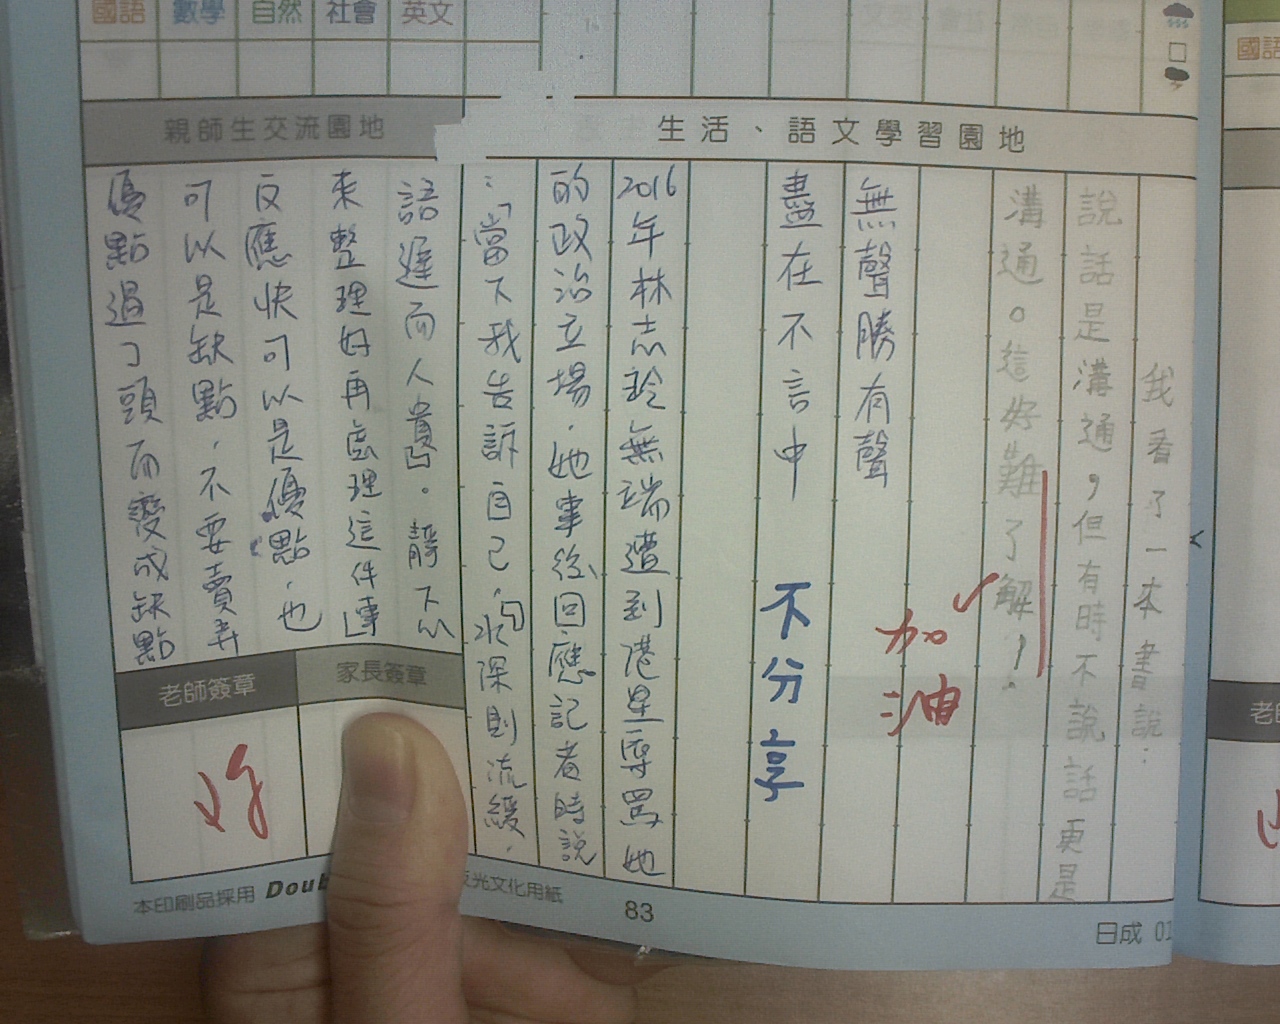 國語 數學 自然 社會 英文
親師生交流園地
生活、語文學習園地
我看了一本書說:
說話是溝通,但有時不說話更是
溝通。這好難了解!。
加油
無聲勝有聲
盡在不言中 不分享
2016年林志玲無端遭到港星辱罵她
的政治立場,她事後回應記者時說
:「當下我告訴自己,水深則流緩,
語遲而人貴」。靜下心
來整理好再處理這件事
反應快可以是優點,也
可以是缺點,不要賣弄
優點過了頭而變成缺點
老師簽章
家長簽章
本印刷品採用 Doub
光文化用紙
83
日成
國語